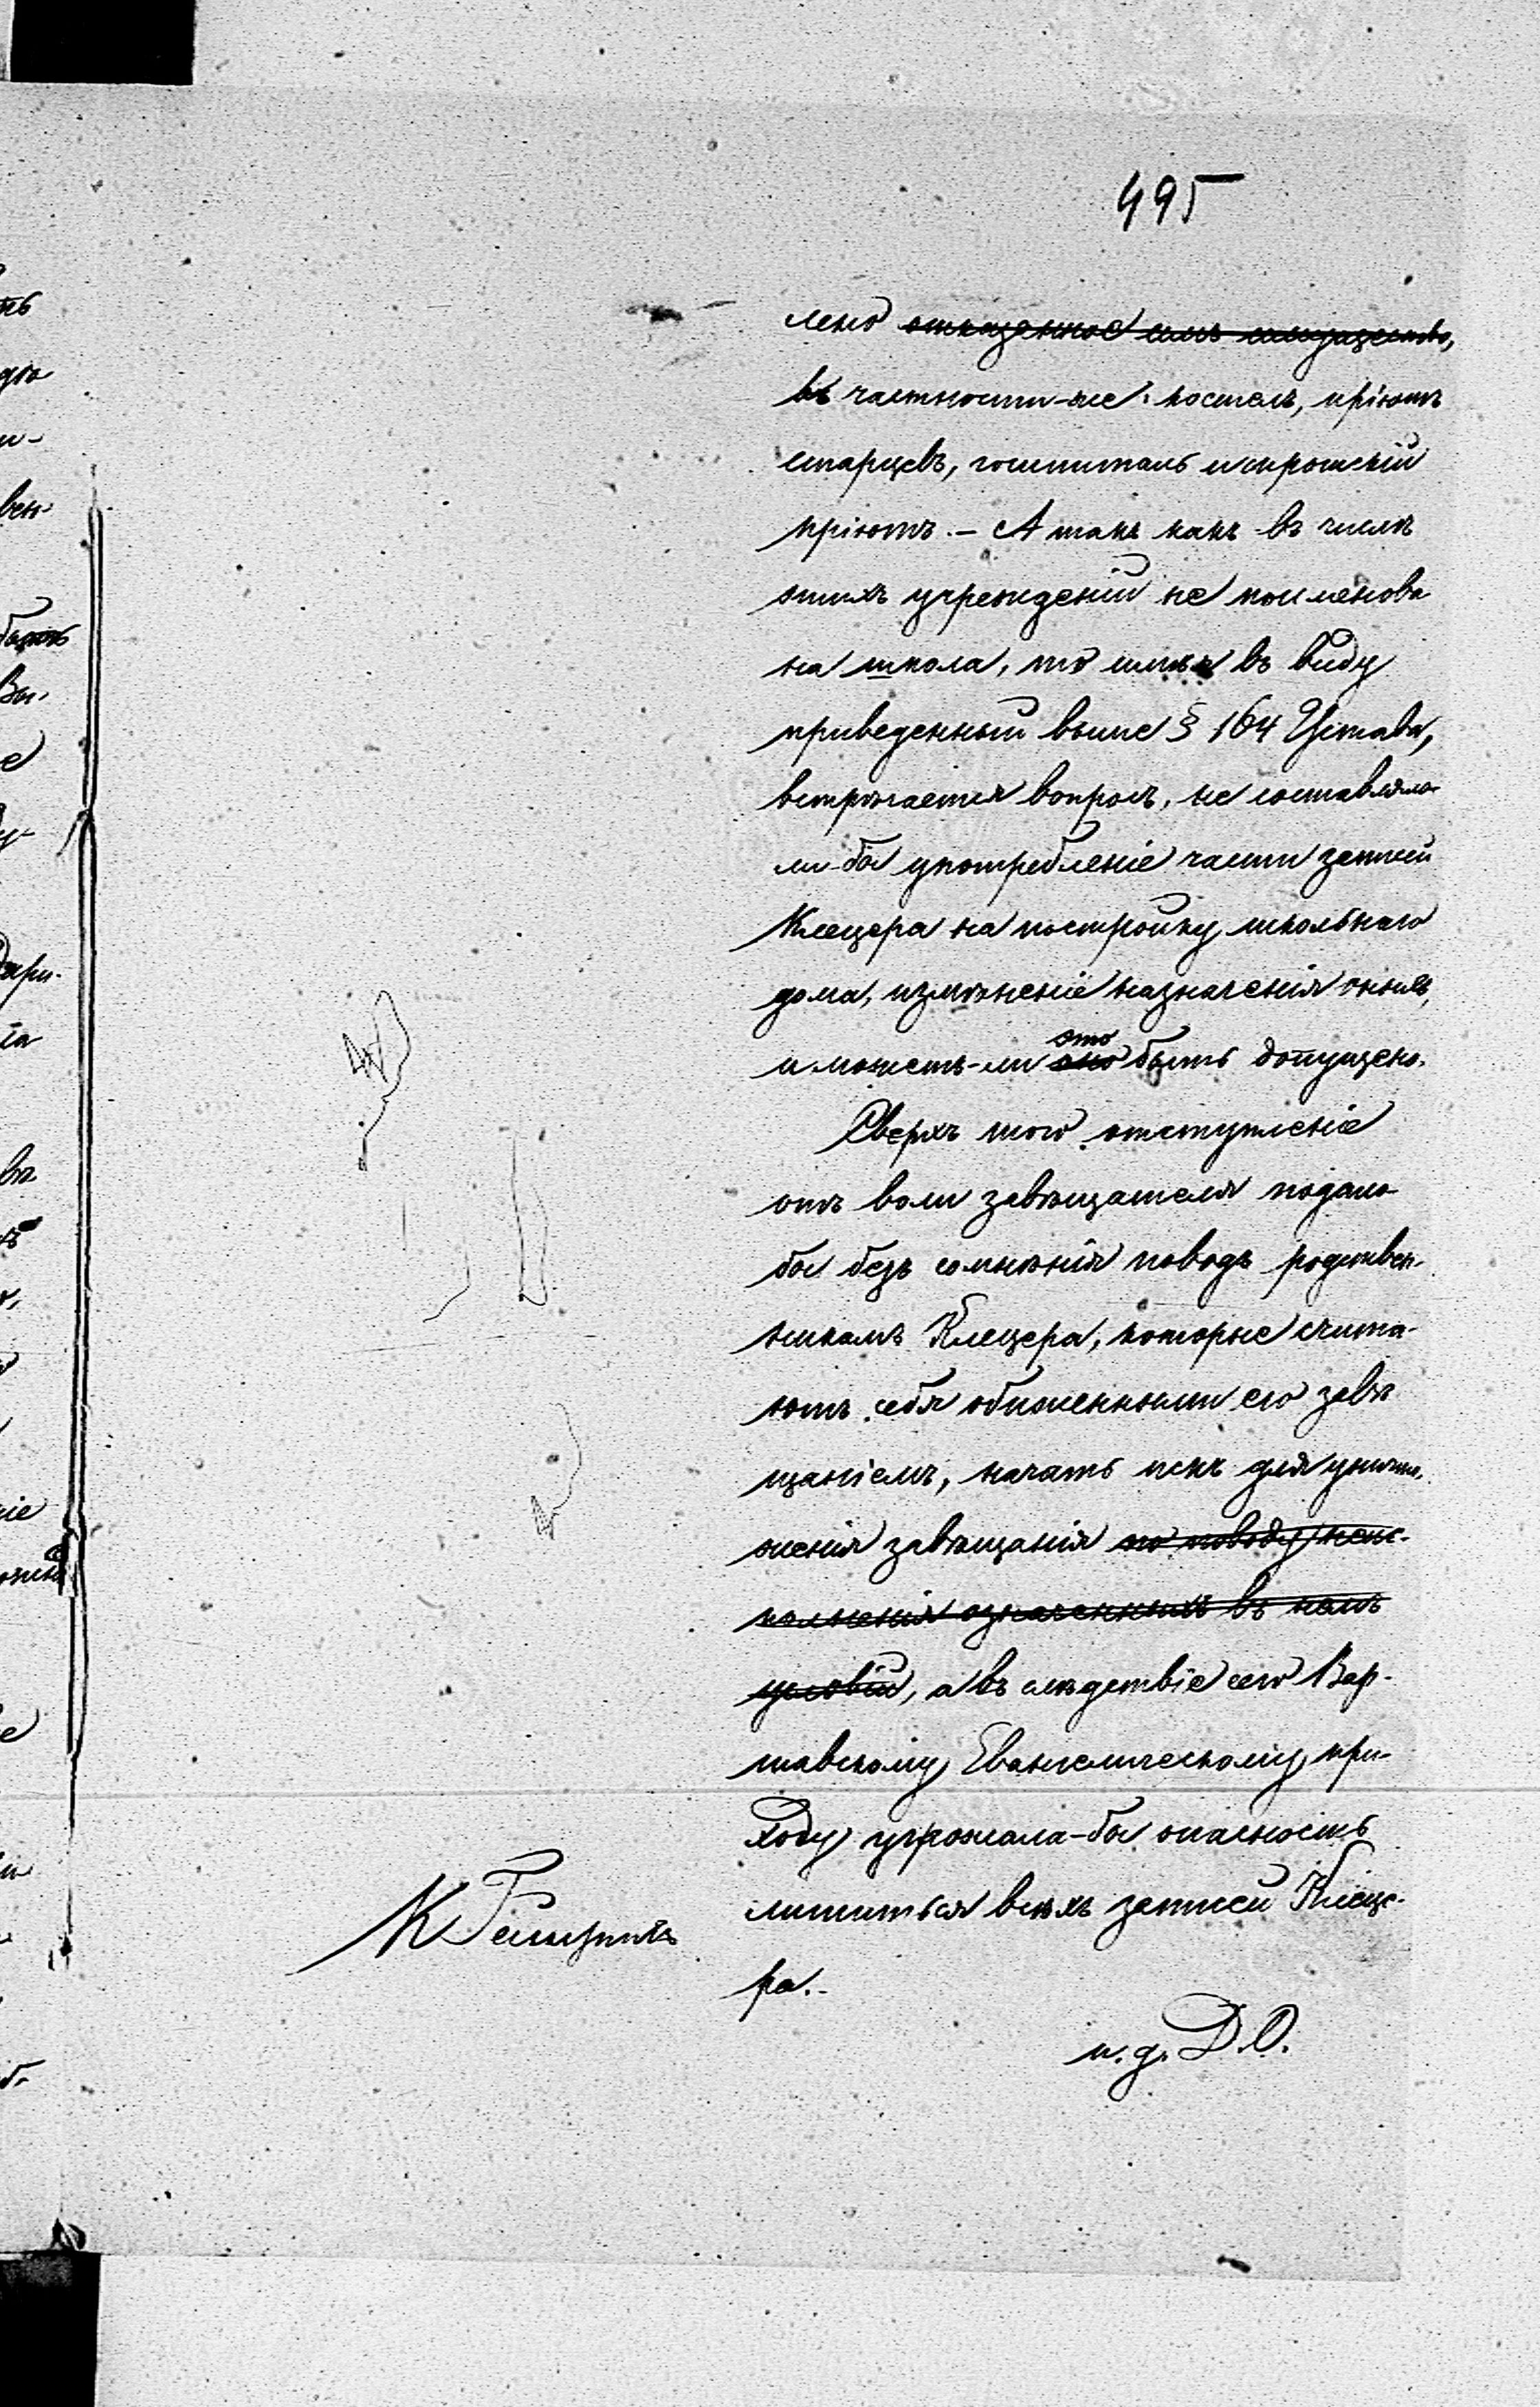 495
лено отказанное имъ имущество,
въ частности-же: костелъ, пріютъ
старцевъ, госпиталь и сиротскій
пріютъ. — А такъ какъ въ числѣ
этихъ учрежденій не поименова
на школа, то имѣя въ виду
приведенный выше § 164 Устава,
встрѣчается вопросъ, не составляло-
ли-бы употребленіе части записи
Клецера на постройку школьнаго
дома, измѣненіе назначенія оныхъ,
это
и можетъ-ли оно быть допущено.
Сверхъ того отступленіе
отъ воли завѣщателя подало
бы безъ сомнѣнія поводъ родствен-
никамъ Клецера, которые счита-
ютъ себя обиженными его завѣ
щаніемъ, начать искъ для уничто-
женія завѣщанія по поводу неис-
полненія означенныхъ въ немъ
условій, а въ слѣдствіе сего Вар-
шавскому Евангелическому при-
ходу угрожала-бы опасность
лишиться всѣхъ записей Клеце-
ра.-
и. д. Д. О.